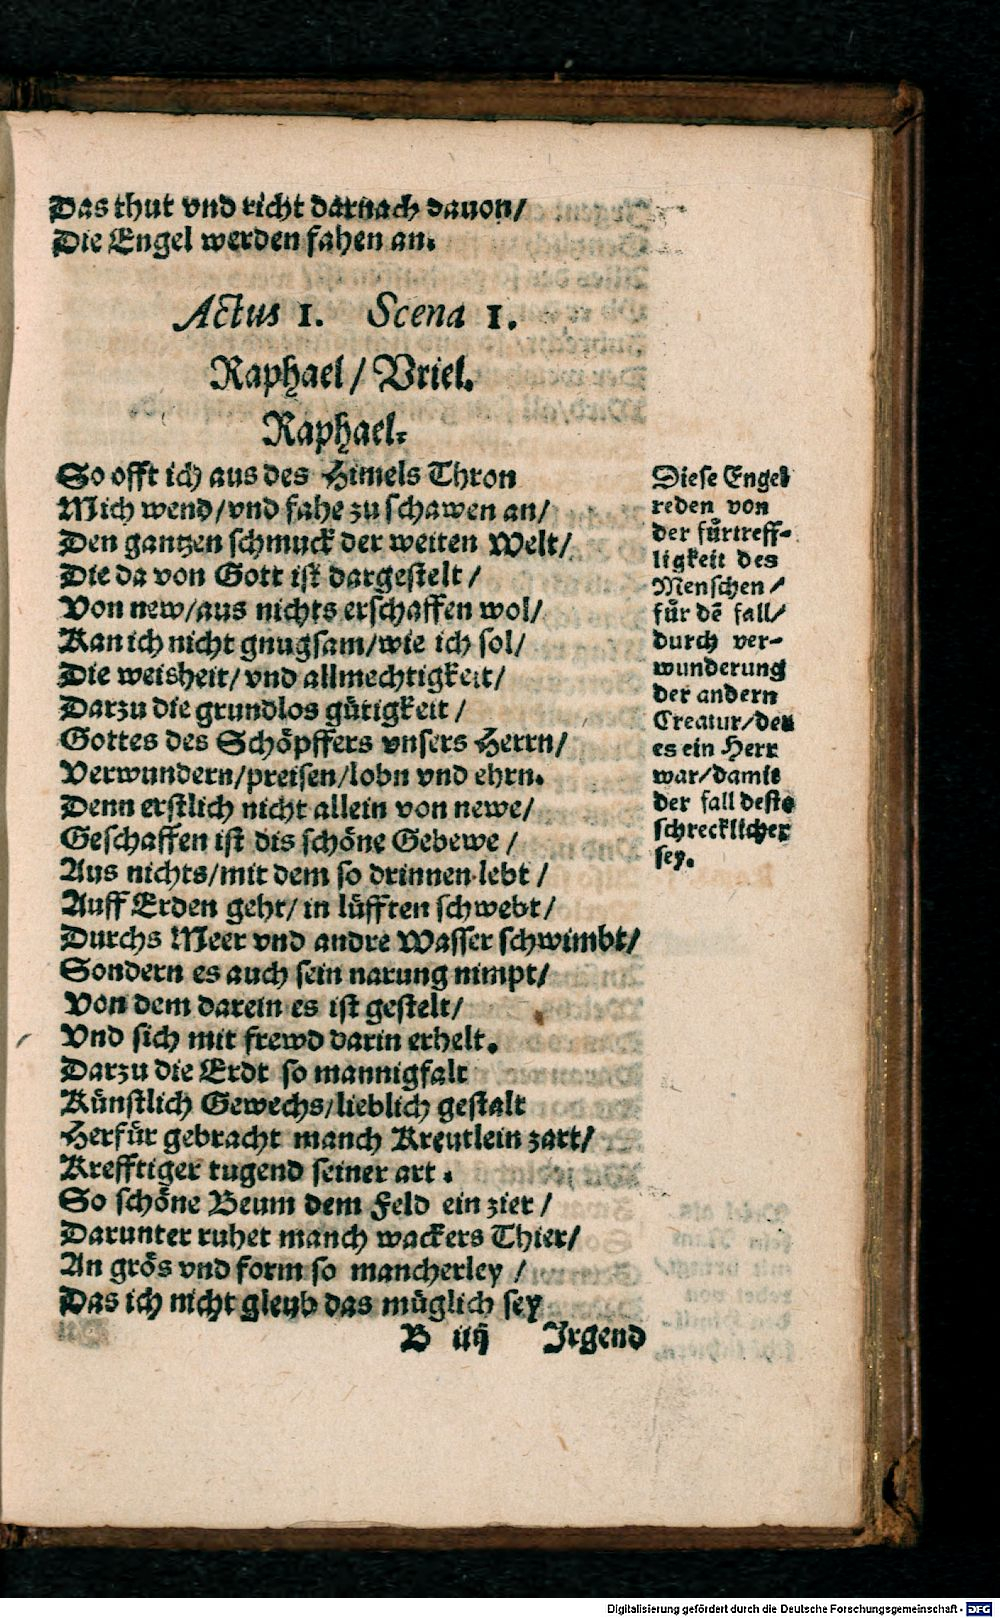 Das thut vnd richt darnach dauon/
Die Engel werden fahen an.
Actus 1. Scena 1.
Raphael/ Vriel.
Raphael.
So offt ich aus des Himels Thron
Mich wend/vnd fahe zu schawen an/
Den gantzen schmuck der weiten Welt/
Die da von Gott ist dargestelt/
Von new/aus nichts erschaffen wol/
Kan ich nicht gnugsam/wie ich sol/
Die weisheit/ vnd allmechtigkeit/
Darzu die grundlos gütigkeit/
Gottes des Schöpffers vnsers Herrn/
Verwundern/preisen/lobn vnd ehrn.
Denn erstlich nicht allein von newe/
Geschaffen ist dis schöne Gebewe/
Aus nichts/mit dem so drinnen lebt/
Auff Erden geht/ in lüfften schwebt/
Durchs Meer vnd andre Wasser schwimbt/
Sondern es auch sein narung nimpt/
Von dem darein es ist gestelt/
Vnd sich mit frewd darin erhelt.
Darzu die Erdt so mannigfalt
Künstlich Gewechs/lieblich gestalt
Herfür gebracht manch Kreutlein zart/
Krefftiger tugend seiner art.
So schöne Beum dem Feld ein zier/
Darunter ruhet manch wackers Thier/
An grös vnd form so mancherley/
Das ich nicht gleub das müglich sey
B iiij Irgend
Diese Engel
reden von
der fürtreff-
ligkeit des
Menschen/
für dē fall/
durch ver-
wunderung
der andern
Creatur/der
es ein Herr
war/damit
der fall deste
schrecklicher
sey.
Digitalisierung gefördert durch die Deutsche Forschungsgemeinschaft - DFG